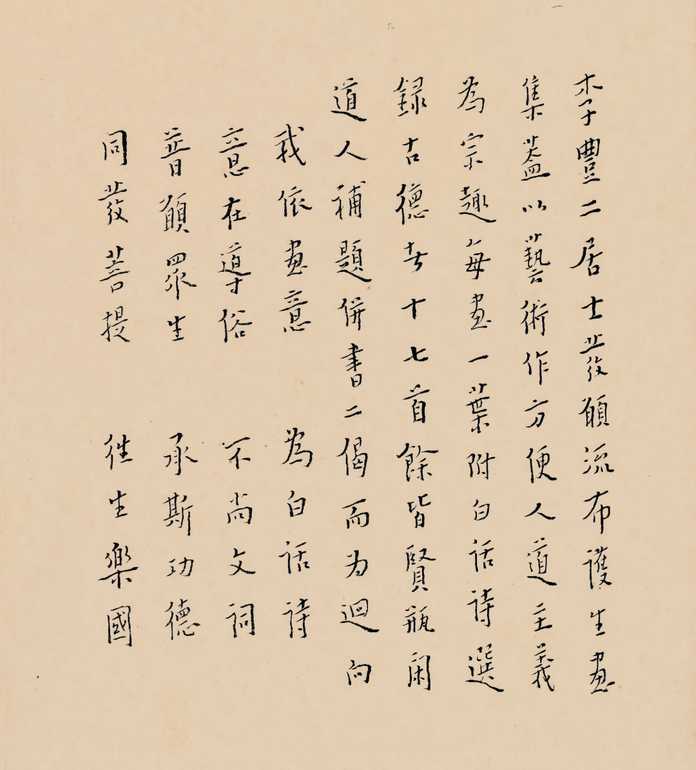 李豐二居士發願流布護生畫
集蓋以藝術作方便人道主義
為宗趣每畫一葉附白話詩選
錄古德者十七首餘皆賢瓶閑
道人補題併書二偈而为迴向
我依畫意　為白話詩
意在導俗　不尚文詞
普願眾生　承斯功德
同發菩提　往生樂國